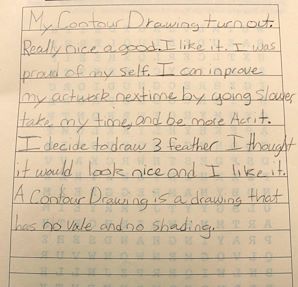 My Contour Drawing turn out.
Really nice a good. I like it. I was
proud of my self. I can inprove
my actwork nextime by going Slower,
take my time, and be more
I decide to draw 3 feather I thought
it would look nice and I like it.
A Contour Drawing is a drawing that
has no vale and no shading.